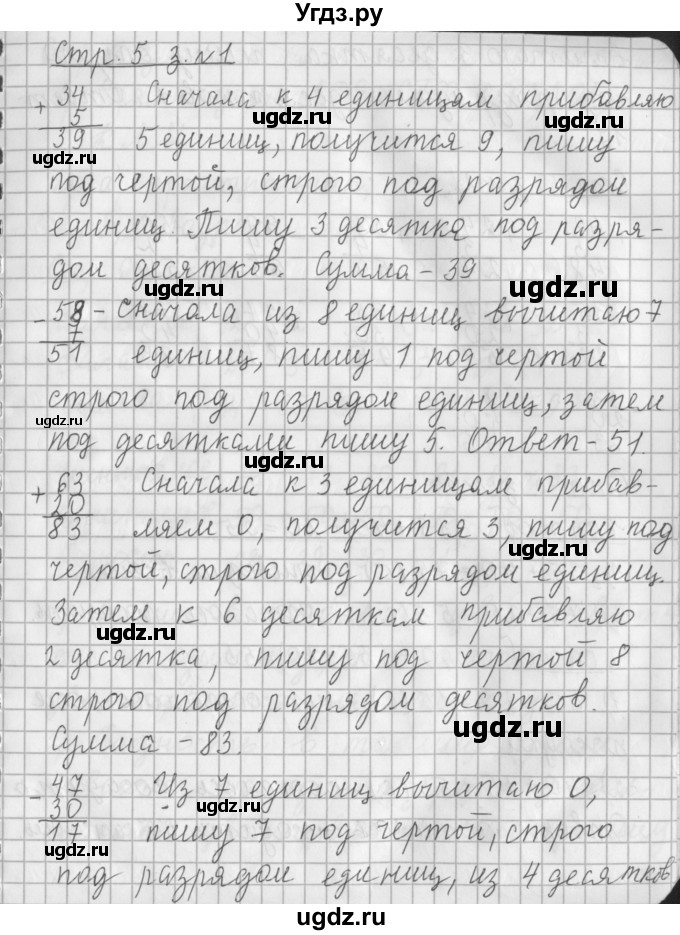 Угдз.ру
Стр. 5 з. №1
+ 34 Сначала к 4 единицам прибавляю
5
39 5 единиц, получится 9, пишу
ugdz.ru ugdz.ru
под чертой, строго под разрядом
единиц. Пишу 3 десятка под разря-
ugdz.ru
дом десятков. Сумма - 39
ugdz.ru ugdz.ru
- 58 - Сначала из 8 единиц вычитаю 7
7
51 единиц, пишу 1 под чертой
ugdz.ru
строго под разрядом единиц, затем
ugdz.ru
под десятками пишу 5. Ответ - 51.
ugdz.ru
+ 63 Сначала к 3 единицам прибав-
20
83 ляем 0, получится 3, пишу под
ugdz.ru
чертой, строго под разрядом единиц.
Затем к 6 десяткам прибавляю
ugdz.ru
2 десятка, пишу под чертой 8
строго под разрядом десятков.
ugdz.ru
Сумма - 83.
- 47 Из 7 единиц вычитаю 0,
30
ugdz.ru
17 пишу 7 под чертой, строго
ugdz.ru
под разрядом единиц, из 4 десятков
ugdz.ru